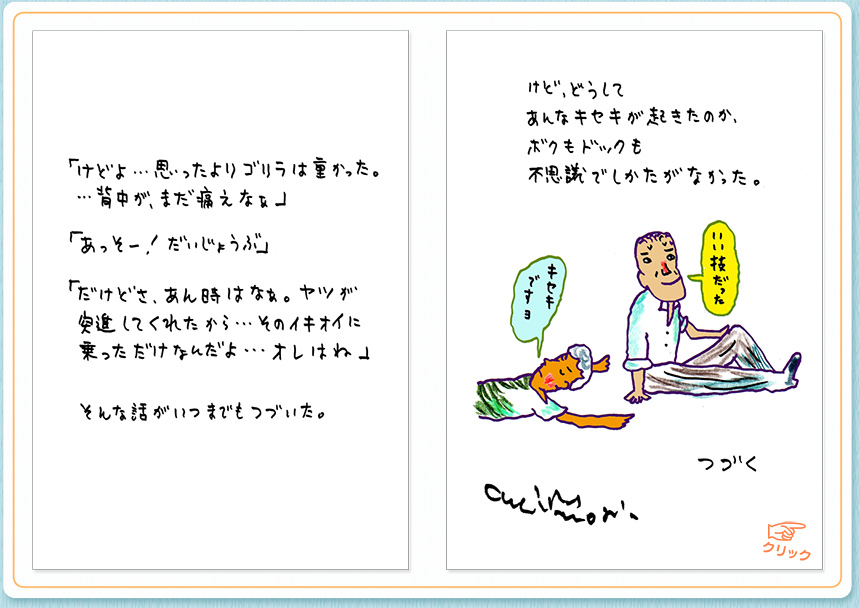 「けどよ…思ったよりゴリラは重かった。
…背中が、まだ痛えなぁ」
「あっそー！だいじょうぶ」
「だけどさ、あん時はなぁ。ヤツが
突進してくれたから…そのイキオイに
乗っただけなんだよ…オレはね」
そんな話がいつまでもつづいた。
けど、どうして
あんなキセキが起きたのか、
ボクもドックも
不思議でしかたがなかった。
いい技だった
キセキ
ですヨ
つづく
クリック